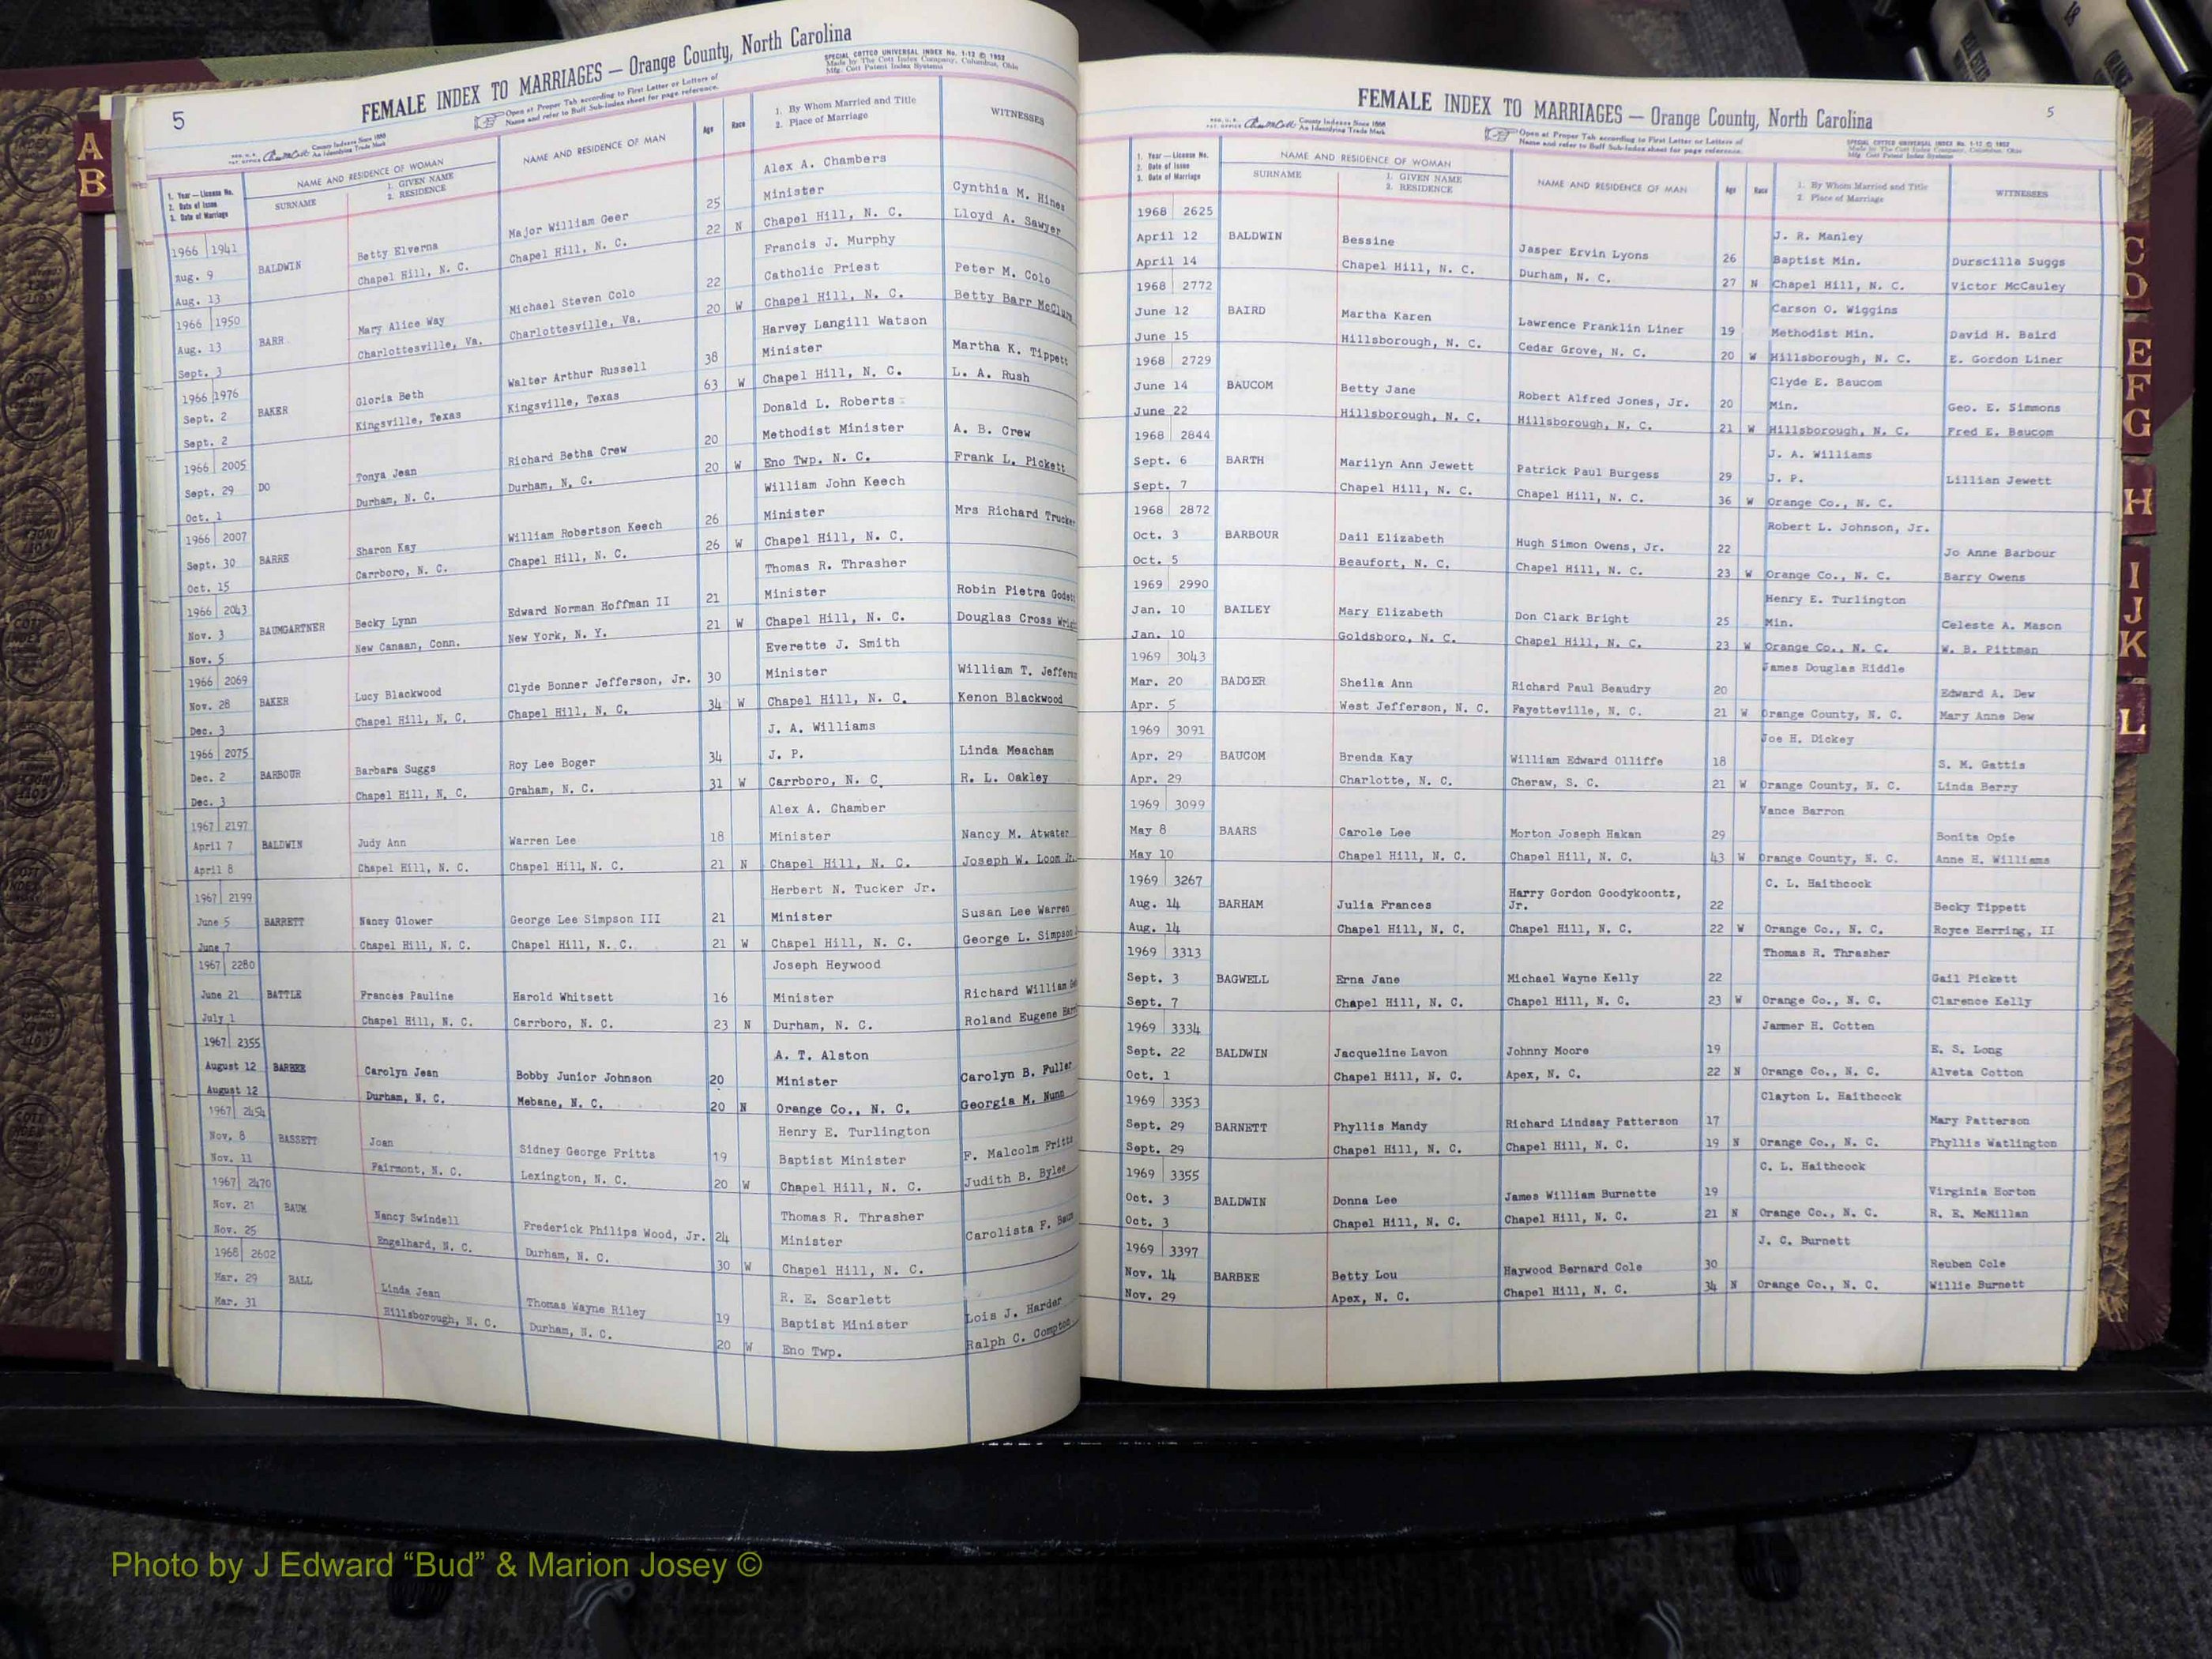 5
FEMALE INDEX TO MARRIAGES — Orange County, North Carolina
SPECIAL COTTCO UNIVERSAL INDEX No. 1-12 © 1952
Made by The Cott Index Company, Columbus, Ohio
Mfg. Cott Patent Index Systems
County Indexes Since 1888
An Identifying Trade Mark
Open at Proper Tab according to First Letter or Letters of
Name and refer to Buff Sub-Index sheet for page reference.
1. Year — License No.
2. Date of Issue
3. Date of Marriage
NAME AND RESIDENCE OF WOMAN
SURNAME
1. GIVEN NAME
2. RESIDENCE
NAME AND RESIDENCE OF MAN
Age
Race
1. By Whom Married and Title
2. Place of Marriage
WITNESSES
1966 1941 Alex A. Chambers
Aug. 9 BALDWIN Betty Elverna Major William Geer 25 Minister Cynthia M. Hines
Aug. 13 Chapel Hill, N. C. Chapel Hill, N. C. 22 N Chapel Hill, N. C. Lloyd A. Sawyer
1966 1950 Francis J. Murphy
Aug. 13 BARR Mary Alice Way Michael Steven Colo 22 Catholic Priest Peter M. Colo
Sept. 3 Charlottesville, Va. Charlottesville, Va. 20 W Chapel Hill, N. C. Betty Barr McClure
1966 1976 Harvey Langill Watson
Sept. 2 BAKER Gloria Beth Walter Arthur Russell 38 Minister Martha K. Tippett
Sept. 2 Kingsville, Texas Kingsville, Texas 63 W Chapel Hill, N. C. L. A. Rush
1966 2005 Donald L. Roberts
Sept. 29 DO Tonya Jean Richard Betha Crew 20 Methodist Minister A. B. Crew
Oct. 1 Durham, N. C. Durham, N. C. 20 W Eno Twp. N. C. Frank L. Pickett
1966 2007 William John Keech
Sept. 30 BARRE Sharon Kay William Robertson Keech 26 Minister Mrs Richard Trucker
Oct. 15 Carrboro, N. C. Chapel Hill, N. C. 26 W Chapel Hill, N. C.
1966 2043 Thomas R. Thrasher
Nov. 3 BAUMGARTNER Becky Lynn Edward Norman Hoffman II 21 Minister Robin Pietra
Nov. 5 New Canaan, Conn. New York, N. Y. 21 W Chapel Hill, N. C. Douglas Cross
1966 2069 Everette J. Smith
Nov. 28 BAKER Lucy Blackwood Clyde Bonner Jefferson, Jr. 30 Minister William T.
Dec. 3 Chapel Hill, N. C. Chapel Hill, N. C. 34 W Chapel Hill, N. C. Kenon Blackwood
1966 2075 J. A. Williams
Dec. 2 BARBOUR Barbara Suggs Roy Lee Boger 34 J. P. Linda Meacham
Dec. 3 Chapel Hill, N. C. Graham, N. C. 31 W Carrboro, N. C. R. L. Oakley
1967 2197 Alex A. Chamber
April 7 BALDWIN Judy Ann Warren Lee 18 Minister Nancy M. Atwater
April 8 Chapel Hill, N. C. Chapel Hill, N. C. 21 N Chapel Hill, N. C. Joseph W. Loom Jr.
1967 2199 Herbert N. Tucker Jr.
June 5 BARRETT Nancy Glower George Lee Simpson III 21 Minister Susan Lee Warren
June 7 Chapel Hill, N. C. Chapel Hill, N. C. 21 W Chapel Hill, N. C. George L. Simpson
1967 2280 Joseph Heywood
June 21 BATTLE Frances Pauline Harold Whitsett 16 Minister Richard William
July 1 Chapel Hill, N. C. Carrboro, N. C. 23 N Durham, N. C. Roland Eugene
1967 2355 A. T. Alston
August 12 BARBEE Carolyn Jean Bobby Junior Johnson 20 Minister Carolyn B. Fuller
August 12 Durham, N. C. Mebane, N. C. 20 N Orange Co., N. C. Georgia M. Nunn
1967 2454 Henry E. Turlington
Nov. 8 BASSETT Joan Sidney George Fritts 19 Baptist Minister F. Malcolm Fritts
Nov. 11 Fairmont, N. C. Lexington, N. C. 20 W Chapel Hill, N. C. Judith B. Bylee
1967 2470 Thomas R. Thrasher
Nov. 21 BAUM Nancy Swindell Frederick Philips Wood, Jr. 24 Minister Carolista F. Baum
Nov. 25 Engelhard, N. C. Durham, N. C. 30 W Chapel Hill, N. C.
1968 2602 R. E. Scarlett
Mar. 29 BALL Linda Jean Thomas Wayne Riley 19 Baptist Minister Lois J. Harder
Mar. 31 Hillsborough, N. C. Durham, N. C. 20 W Eno Twp. Ralph C. Compton
5
FEMALE INDEX TO MARRIAGES — Orange County, North Carolina
County Indexes Since 1888
An Identifying Trade Mark
Open at Proper Tab according to First Letter or Letters of
Name and refer to Buff Sub-Index sheet for page reference.
SPECIAL COTTCO UNIVERSAL INDEX No. 1-12 © 1952
Made by The Cott Index Company, Columbus, Ohio
Mfg. Cott Patent Index Systems
1. Year — License No.
2. Date of Issue
3. Date of Marriage
NAME AND RESIDENCE OF WOMAN
SURNAME
1. GIVEN NAME
2. RESIDENCE
NAME AND RESIDENCE OF MAN
Age
Race
1. By Whom Married and Title
2. Place of Marriage
WITNESSES
1968 2625 J. R. Manley
April 12 BALDWIN Bessine Jasper Ervin Lyons 26 Baptist Min. Durscilla Suggs
April 14 Chapel Hill, N. C. Durham, N. C. 27 N Chapel Hill, N. C. Victor McCauley
1968 2772 Carson O. Wiggins
June 12 BAIRD Martha Karen Lawrence Franklin Liner 19 Methodist Min. David H. Baird
June 15 Hillsborough, N. C. Cedar Grove, N. C. 20 W Hillsborough, N. C. E. Gordon Liner
1968 2729 Clyde E. Baucom
June 14 BAUCOM Betty Jane Robert Alfred Jones, Jr. 20 Min. Geo. E. Simmons
June 22 Hillsborough, N. C. Hillsborough, N. C. 21 W Hillsborough, N. C. Fred E. Baucom
1968 2844 J. A. Williams
Sept. 6 BARTH Marilyn Ann Jewett Patrick Paul Burgess 29 J. P. Lillian Jewett
Sept. 7 Chapel Hill, N. C. Chapel Hill, N. C. 36 W Orange Co., N. C.
1968 2872 Robert L. Johnson, Jr.
Oct. 3 BARBOUR Dail Elizabeth Hugh Simon Owens, Jr. 22 Jo Anne Barbour
Oct. 5 Beaufort, N. C. Chapel Hill, N. C. 23 W Orange Co., N. C. Barry Owens
1969 2990 Henry E. Turlington
Jan. 10 BAILEY Mary Elizabeth Don Clark Bright 25 Min. Celeste A. Mason
Jan. 10 Goldsboro, N. C. Chapel Hill, N. C. 23 W Orange Co., N. C. W. B. Pittman
1969 3043 James Douglas Riddle
Mar. 20 BADGER Sheila Ann Richard Paul Beaudry 20 Edward A. Dew
Apr. 5 West Jefferson, N. C. Fayetteville, N. C. 21 W Orange County, N. C. Mary Anne Dew
1969 3091 Joe H. Dickey
Apr. 29 BAUCOM Brenda Kay William Edward Olliffe 18 S. M. Gattis
Apr. 29 Charlotte, N. C. Cheraw, S. C. 21 W Orange County, N. C. Linda Berry
1969 3099 Vance Barron
May 8 BAARS Carole Lee Morton Joseph Hakan 29 Bonita Opie
May 10 Chapel Hill, N. C. Chapel Hill, N. C. 43 W Orange County, N. C. Anne H. Williams
1969 3267 C. L. Haithcock
Aug. 14 BARHAM Julia Frances Harry Gordon Goodykoontz, Jr. 22 Becky Tippett
Aug. 14 Chapel Hill, N. C. Chapel Hill, N. C. 22 W Orange Co., N. C. Royce Herring, II
1969 3313 Thomas R. Thrasher
Sept. 3 BAGWELL Erna Jane Michael Wayne Kelly 22 Gail Pickett
Sept. 7 Chapel Hill, N. C. Chapel Hill, N. C. 23 W Orange Co., N. C. Clarence Kelly
1969 3334 Jammer H. Cotten
Sept. 22 BALDWIN Jacqueline Lavon Johnny Moore 19 E. S. Long
Oct. 1 Chapel Hill, N. C. Apex, N. C. 22 N Orange Co., N. C. Alveta Cotton
1969 3353 Clayton L. Haithcock
Sept. 29 BARNETT Phyllis Mandy Richard Lindsay Patterson 17 Mary Patterson
Sept. 29 Chapel Hill, N. C. Chapel Hill, N. C. 19 N Orange Co., N. C. Phyllis Watlington
1969 3355 C. L. Haithcock
Oct. 3 BALDWIN Donna Lee James William Burnette 19 Virginia Horton
Oct. 3 Chapel Hill, N. C. Chapel Hill, N. C. 21 N Orange Co., N. C. R. E. McMillan
1969 3397 J. C. Burnett
Nov. 14 BARBEE Betty Lou Haywood Bernard Cole 30 Reuben Cole
Nov. 29 Apex, N. C. Chapel Hill, N. C. 34 N Orange Co., N. C. Willie Burnett
A
B
C
D
E
F
G
H
I
J
K
L
18
Photo by J Edward “Bud” & Marion Josey ©